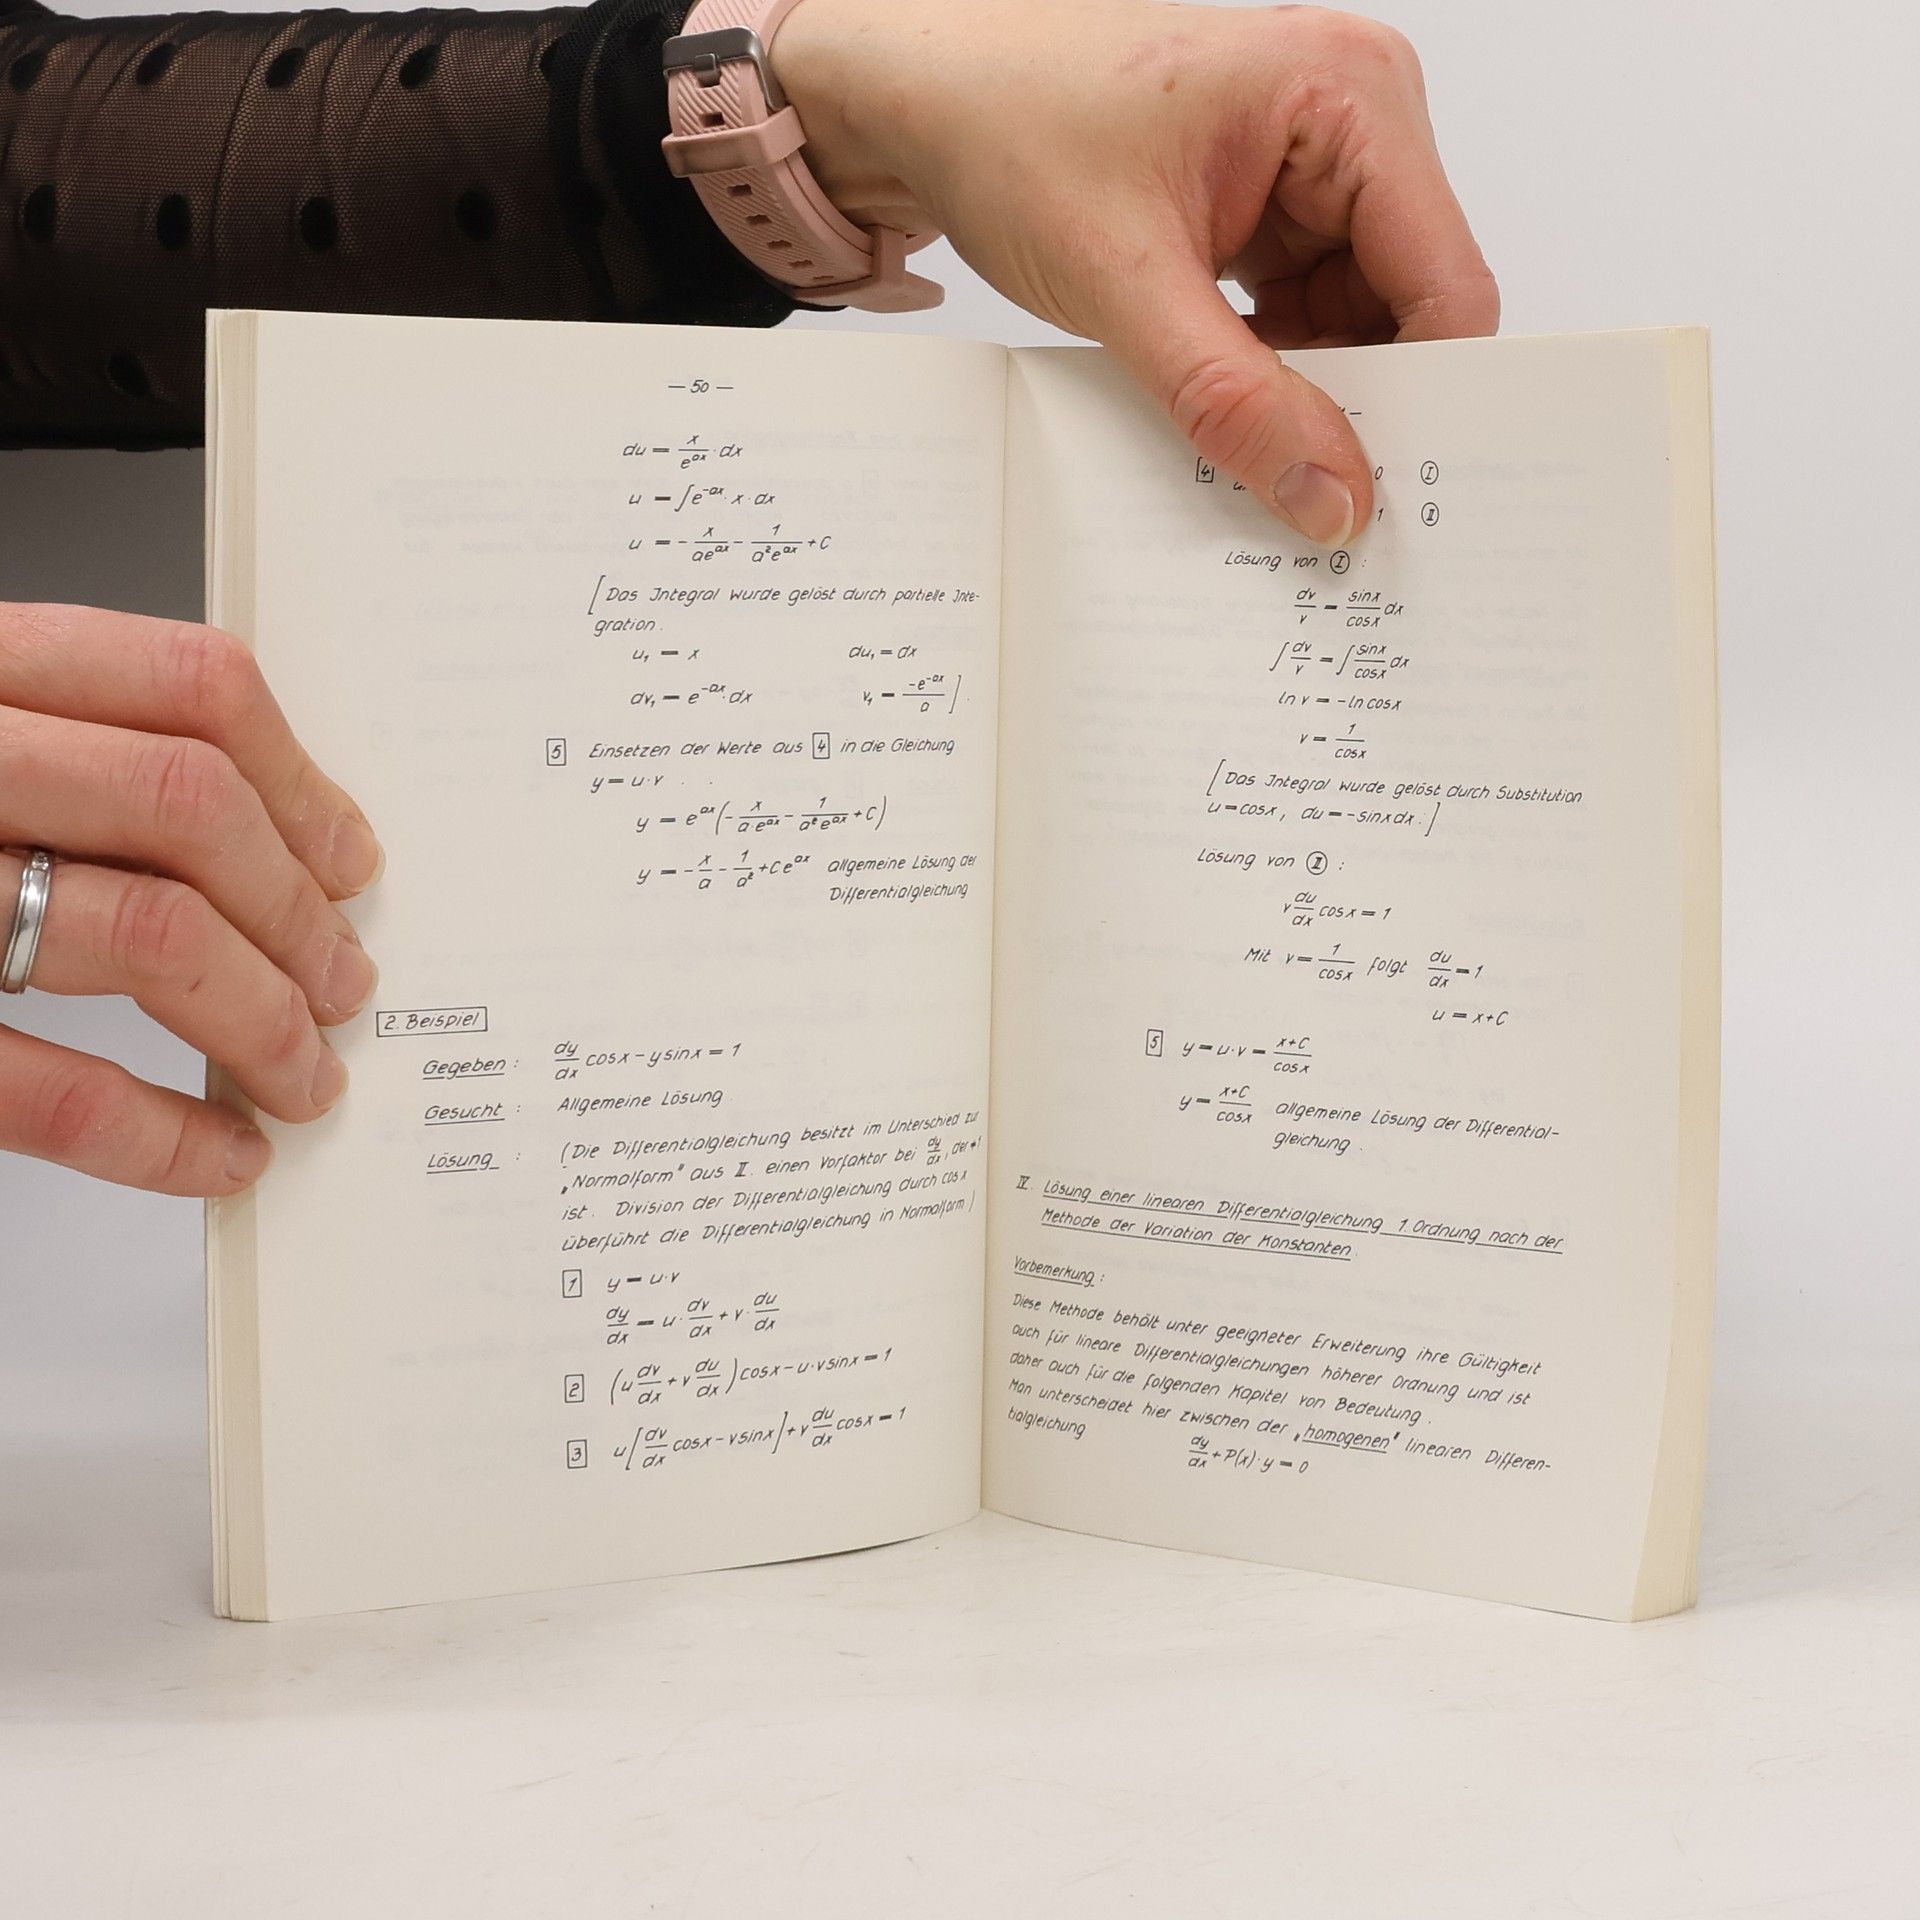 — 50 —
du = x/e^ax · dx
u = ∫e^-ax · x · dx
u = - x/ae^ax - 1/a²e^ax + C
[Das Integral wurde gelöst durch partielle Inte-
gration.
u₁ = x du₁ = dx
dv₁ = e^-ax · dx v₁ = -e^-ax/a ].
5 Einsetzen der Werte aus 4 in die Gleichung
y = u·v .
y = e^ax(- x/a·e^ax - 1/a²e^ax + C)
y = - x/a - 1/a² + Ce^ax allgemeine Lösung der
Differentialgleichung
2. Beispiel
Gegeben : dy/dx cosx - y sinx = 1
Gesucht : Allgemeine Lösung.
Lösung : (Die Differentialgleichung besitzt im Unterschied zur
„Normalform" aus II. einen Vorfaktor bei dy/dx, der ≠1
ist. Division der Differentialgleichung durch cosx
überführt die Differentialgleichung in Normalform.)
1 y = u·v
dy/dx = u· dv/dx + v· du/dx
2 (u dv/dx + v du/dx) cosx - u·v sinx = 1
3 u[dv/dx cosx - v sinx] + v du/dx cosx = 1
4 0 I
1 II
Lösung von I :
dv/v = sinx/cosx dx
∫ dv/v = ∫ sinx/cosx dx
ln v = -ln cosx
v = 1/cosx
[Das Integral wurde gelöst durch Substitution
u = cosx, du = -sinx dx.]
Lösung von II :
v du/dx cosx = 1
Mit v = 1/cosx folgt du/dx = 1
u = x+C
5 y = u·v = x+C/cosx
y = x+C/cosx allgemeine Lösung der Differential-
gleichung.
IV. Lösung einer linearen Differentialgleichung 1. Ordnung nach der
Methode der Variation der Konstanten.
Vorbemerkung :
Diese Methode behält unter geeigneter Erweiterung ihre Gültigkeit
auch für lineare Differentialgleichungen höherer Ordnung und ist
daher auch für die folgenden Kapitel von Bedeutung.
Man unterscheidet hier zwischen der „homogenen" linearen Differen-
tialgleichung
dy/dx + P(x)·y = 0